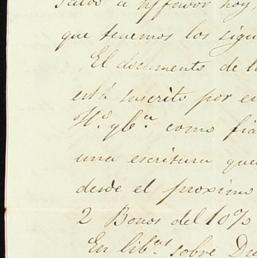 Saldo a s/favor hoy,
que tenemos los sigui
El documento de l
está suscrito por e
como fia
una escritura que
desde el proximo
2 Bonos del 10%
En lib.s sobre Du